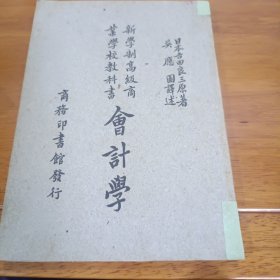 日本吉田良三原著
吳應圖譯述
新學制高級商
業學校教科書
會計學
商務印書館發行